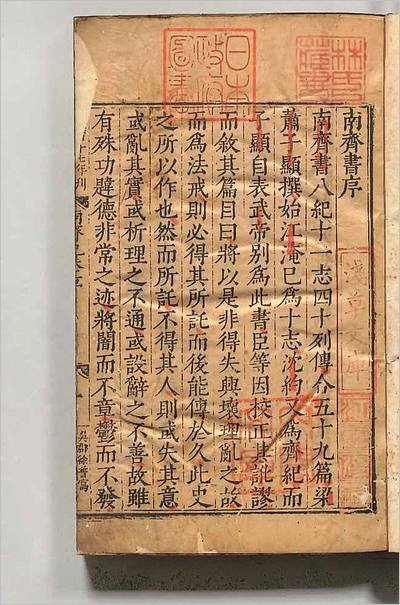 南齊書序
南齊書八紀十一志四十列傳合五十九篇梁
蕭子顯撰始江淹已爲十志沈約又爲齊紀而
子顯自表武帝別爲此書臣等因校正其訛謬
而敘其篇目曰將以是非得失興壞理亂之故
而爲法戒則必得其所託而後能傳於久此史
之所以作也然而所託不得其人則或失其意
或亂其實或析理之不通或設辭之不善故雖
有殊功韙德非常之迹將闇而不章鬱而不發
吳郡徐普寫
林氏藏書
日本政府圖書
淺草文庫